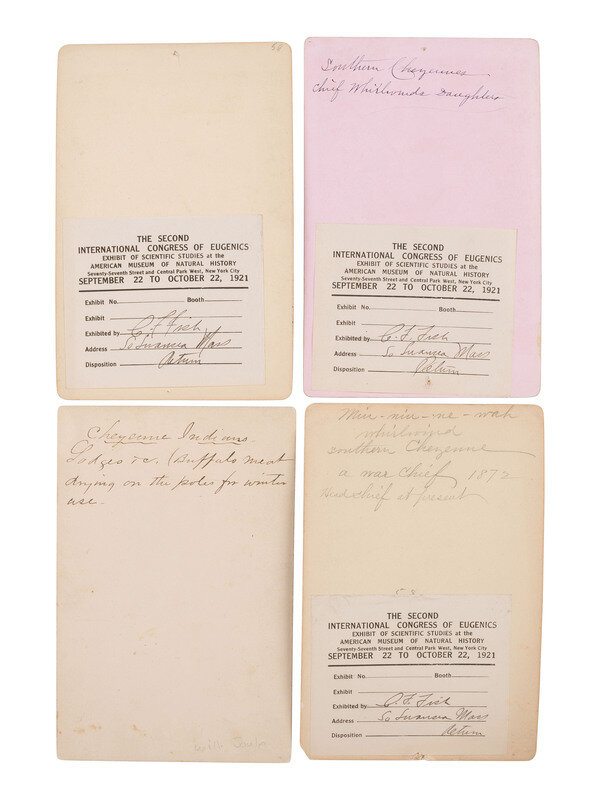 58
THE SECOND
INTERNATIONAL CONGRESS OF EUGENICS
EXHIBIT OF SCIENTIFIC STUDIES at the
AMERICAN MUSEUM OF NATURAL HISTORY
Seventy-Seventh Street and Central Park West, New York City
SEPTEMBER 22 TO OCTOBER 22, 1921
Exhibit No. Booth
Exhibit
Exhibited by C. F. Fish
Address So Swansea Mass
Disposition Return
Southern Cheyennes
Chief Whirlwinds Daughters
THE SECOND
INTERNATIONAL CONGRESS OF EUGENICS
EXHIBIT OF SCIENTIFIC STUDIES at the
AMERICAN MUSEUM OF NATURAL HISTORY
Seventy-Seventh Street and Central Park West, New York City
SEPTEMBER 22 TO OCTOBER 22, 1921
Exhibit No. Booth
Exhibit
Exhibited by C. F. Fish
Address So Swansea Mass
Disposition Return
Cheyenne Indians
Lodges &c. (Buffalo meat
drying on the poles for winter
use
Min-nin-ne-wah
whirlwind
southern Cheyenne
a war chief 1872
Head chief at present
THE SECOND
INTERNATIONAL CONGRESS OF EUGENICS
EXHIBIT OF SCIENTIFIC STUDIES at the
AMERICAN MUSEUM OF NATURAL HISTORY
Seventy-Seventh Street and Central Park West, New York City
SEPTEMBER 22 TO OCTOBER 22, 1921
Exhibit No. Booth
Exhibit
Exhibited by C. F. Fish
Address So Swansea Mass
Disposition Return